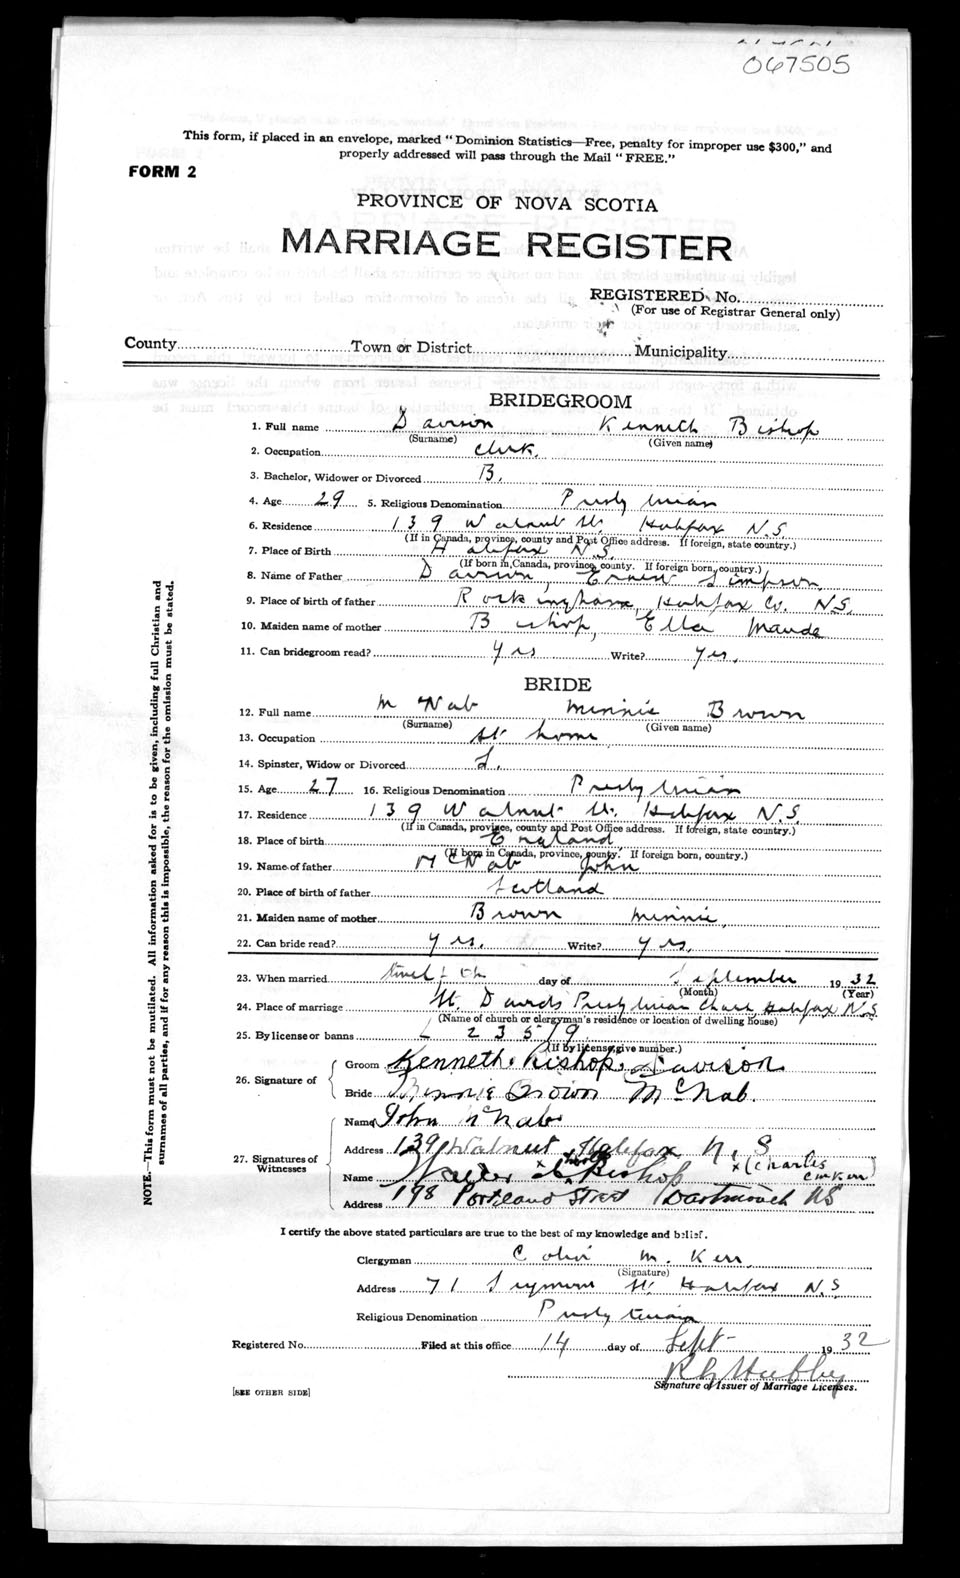 067505
This form, if placed in an envelope, marked "Dominion Statistics—Free, penalty for improper use $300," and
properly addressed will pass through the Mail "FREE."
FORM 2
PROVINCE OF NOVA SCOTIA
MARRIAGE REGISTER
REGISTERED No.
(For use of Registrar General only)
County Town or District Municipality
BRIDEGROOM
1. Full name Davison Kenneth Bishop
(Surname) (Given name)
2. Occupation Clerk.
3. Bachelor, Widower or Divorced B.
4. Age 29 5. Religious Denomination Presbyterian
6. Residence 139 Walnut St. Halifax N.S.
(If in Canada, province, county and Post Office address. If foreign, state country.)
7. Place of Birth Halifax N.S.
(If born in Canada, province, county. If foreign born, country.)
8. Name of Father Davison, Ernest Simpson,
9. Place of birth of father Rockingham, Halifax Co. N.S.
10. Maiden name of mother Bishop, Ella Maude
11. Can bridegroom read? Yes Write? Yes,
BRIDE
12. Full name McNab Minnie Brown
(Surname) (Given name)
13. Occupation At home
14. Spinster, Widow or Divorced S.
15. Age 27 16. Religious Denomination Presbyterian
17. Residence 139 Walnut St. Halifax N.S.
(If in Canada, province, county and Post Office address. If foreign, state country.)
18. Place of birth England
(If born in Canada, province, county. If foreign born, country.)
19. Name of father McNab John
20. Place of birth of father Scotland
21. Maiden name of mother Brown Minnie,
22. Can bride read? Yes, Write? Yes,
23. When married twelfth day of September 1932
(Month) (Year)
24. Place of marriage St. Davids Presbyterian Church, Halifax N.S.
(Name of church or clergyman's residence or location of dwelling house)
25. By license or banns L 23519
(If by license, give number.)
26. Signature of
Groom Kenneth Bishop Davison
Bride Minnie Brown McNab.
27. Signatures of Witnesses
Name John McNab
Address 139 Walnut Halifax N.S
Name Walter Bishop x (Charles
Address 198 Portland Street Dartmouth NS
I certify the above stated particulars are true to the best of my knowledge and belief.
Clergyman Colin M. Kerr
(Signature)
Address 71 Seymour St Halifax N.S.
Religious Denomination Presbyterian
Registered No. Filed at this office 14 day of Sept- 1932
Signature of Issuer of Marriage Licenses.
[SEE OTHER SIDE]
NOTE.—This form must not be mutilated. All information asked for is to be given, including full Christian and
surnames of all parties, and if for any reason this is impossible, the reason for the omission must be stated.